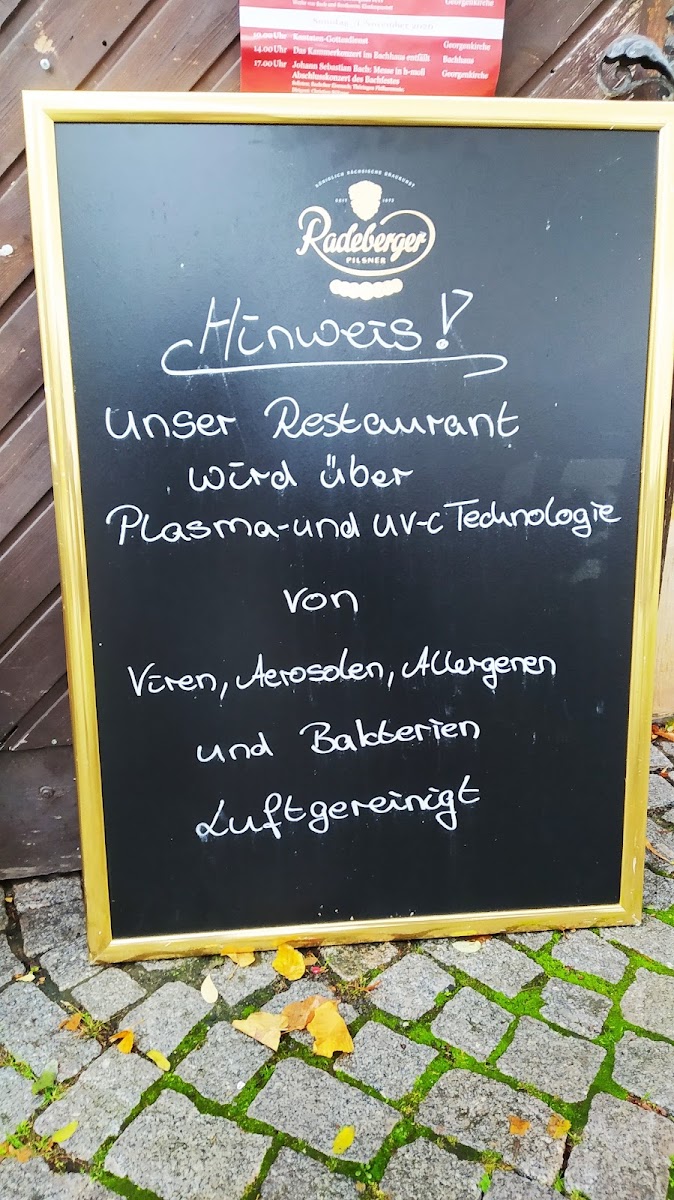 Georgenkirche
Sonntag, 1. November 2020
10.00 Uhr Kantaten-Gottesdienst Georgenkirche
14.00 Uhr Das Kammerkonzert im Bachhaus entfällt Bachhaus
17.00 Uhr Johann Sebastian Bach: Messe in h-moll Georgenkirche
Abschlusskonzert des Bachfestes
KÖNIGLICH SÄCHSISCHE BRAUKUNST
SEIT 1872
Radeberger
PILSNER
Hinweis!
unser Restaurant
wird über
Plasma-und UV-C Technologie
von
Viren, Aerosolen, Allergenen
und Bakterien
Luftgereinigt